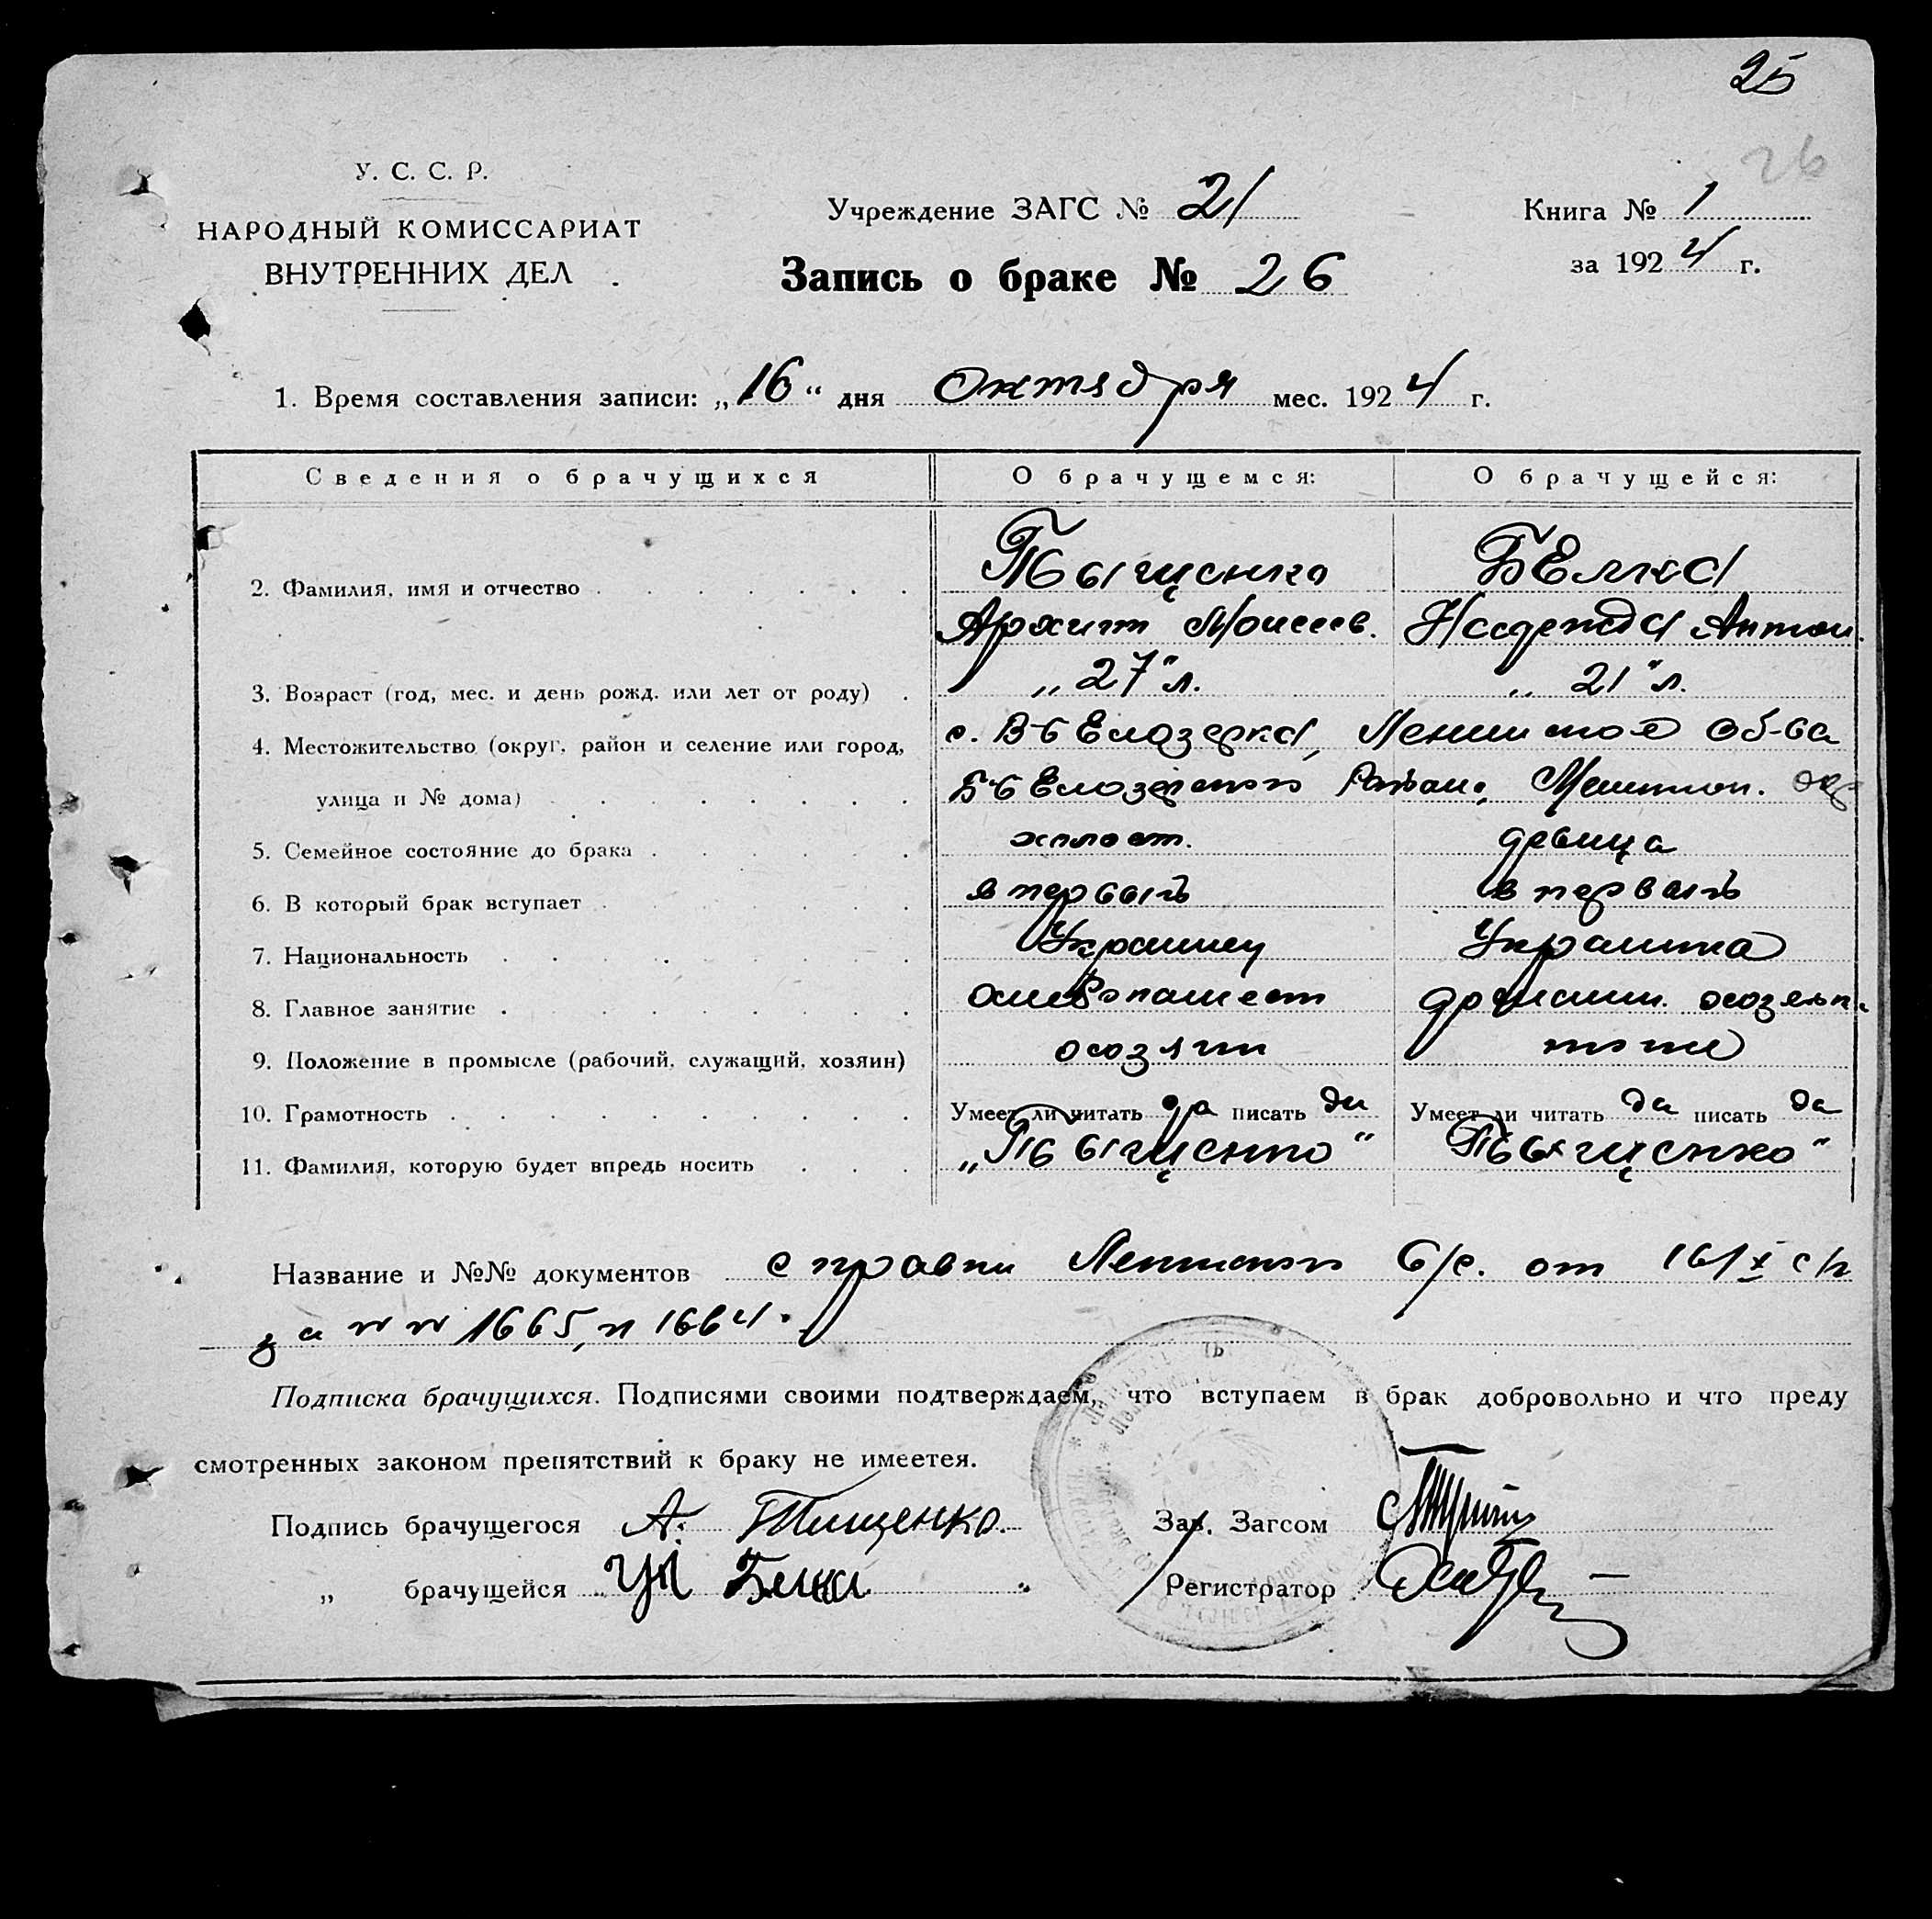 25
26
У. С. С. Р.
НАРОДНЫЙ КОМИССАРИАТ
ВНУТРЕННИХ ДЕЛ
Учреждение ЗАГС № 21
Книга № 1
за 1924 г.
Запись о браке № 26
1. Время составления записи: „16“ дня Октября мес. 1924 г.
Сведения о брачущихся О брачущемся: О брачущейся:
2. Фамилия, имя и отчество
Тыщенко Белка
Архип Моисеев. Надежда Антон.
3. Возраст (год, мес. и день рожд. или лет от роду) „27“ л. „21“ л.
4. Местожительство (округ, район и селение или город, с.
улица и № дома)
5. Семейное состояние до брака холост. девица
6. В который брак вступает в первый в первый
7. Национальность Украинец Украинка
8. Главное занятие хлебопашест
9. Положение в промысле (рабочий, служащий, хозяин) хозяин тоже
10. Грамотность Умеет ли читать да писать да Умеет ли читать да писать да
11. Фамилия, которую будет впредь носить
Название и №№ документов справки от 16/X с/г
за № № 1665, и 1664.
Подписка брачущихся. Подписями своими подтверждаем, что вступаем в брак добровольно и что преду
смотренных законом препятствий к браку не имеетея.
Подпись брачущегося А. Тищенко. Зав. Загсом
„ брачущейся Белка „ Регистратор